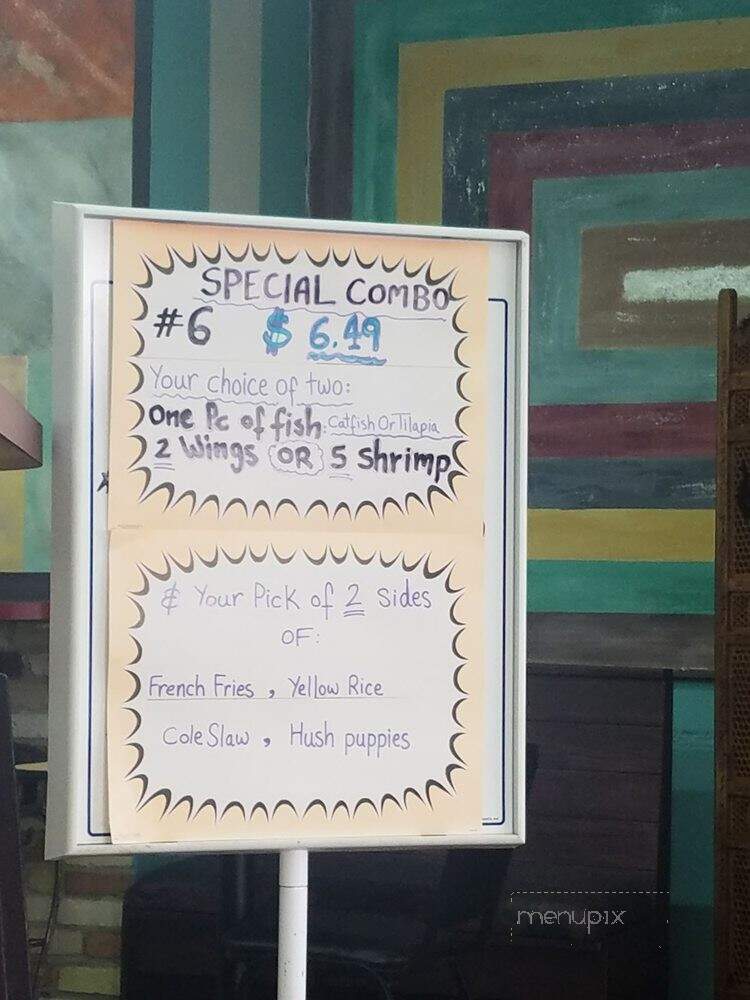 SPECIAL COMBO
#6 $ 6.49
Your choice of two:
One Pc of fish: Catfish Or Tilapia
2 Wings OR 5 Shrimp
& Your Pick of 2 sides
OF:
French Fries , Yellow Rice
Cole Slaw , Hush puppies
menupix